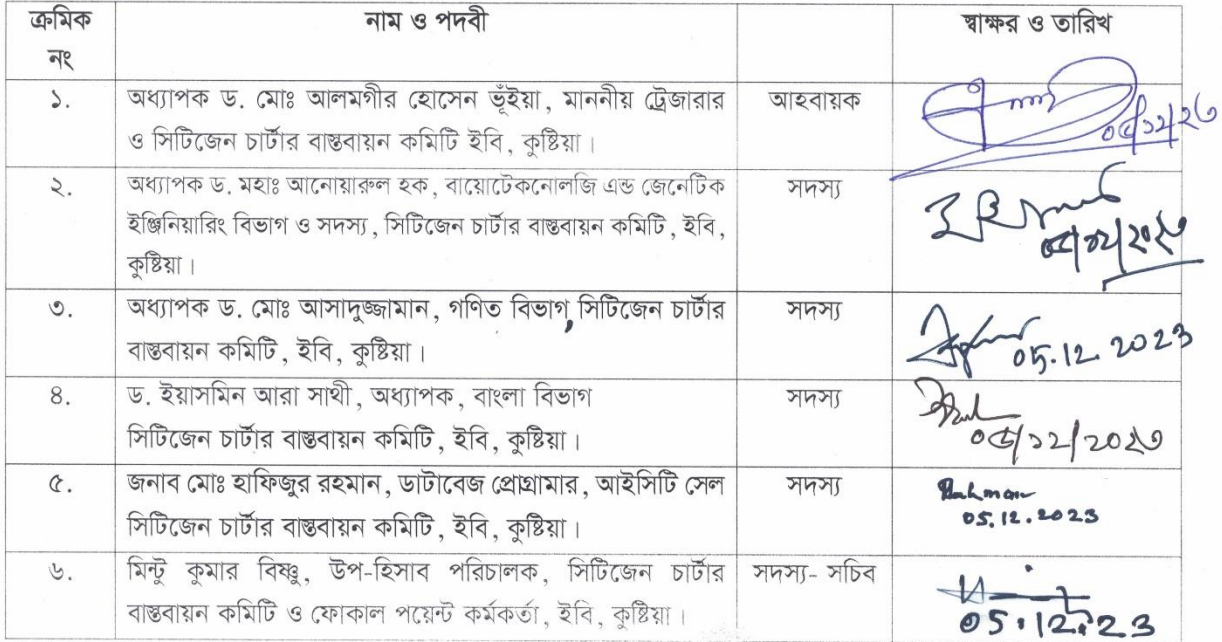 ক্রমিক নাম ও পদবী স্বাক্ষর ও তারিখ
নং
১. অধ্যাপক ড. মোঃ আলমগীর হোসেন ভূঁইয়া, মাননীয় ট্রেজারার আহবায়ক
ও সিটিজেন চার্টার বাস্তবায়ন কমিটি ইবি, কুষ্টিয়া।
০৫/১২/২৩
২. অধ্যাপক ড. মহাঃ আনোয়ারুল হক, বায়োটেকনোলজি এন্ড জেনেটিক সদস্য
ইঞ্জিনিয়ারিং বিভাগ ও সদস্য, সিটিজেন চার্টার বাস্তবায়ন কমিটি, ইবি,
কুষ্টিয়া।
০৫/১২/২০২৩
৩. অধ্যাপক ড. মোঃ আসাদুজ্জামান, গণিত বিভাগ, সিটিজেন চার্টার সদস্য
বাস্তবায়ন কমিটি, ইবি, কুষ্টিয়া।
05.12.2023
৪. ড. ইয়াসমিন আরা সাথী, অধ্যাপক, বাংলা বিভাগ সদস্য
সিটিজেন চার্টার বাস্তবায়ন কমিটি, ইবি, কুষ্টিয়া।
০৫/১২/২০২৩
৫. জনাব মোঃ হাফিজুর রহমান, ডাটাবেজ প্রোগ্রামার, আইসিটি সেল সদস্য
সিটিজেন চার্টার বাস্তবায়ন কমিটি, ইবি, কুষ্টিয়া।
Rahman
05.12.2023
৬. মিন্টু কুমার বিষ্ণু, উপ-হিসাব পরিচালক, সিটিজেন চার্টার সদস্য- সচিব
বাস্তবায়ন কমিটি ও ফোকাল পয়েন্ট কর্মকর্তা, ইবি, কুষ্টিয়া।
05.12.23